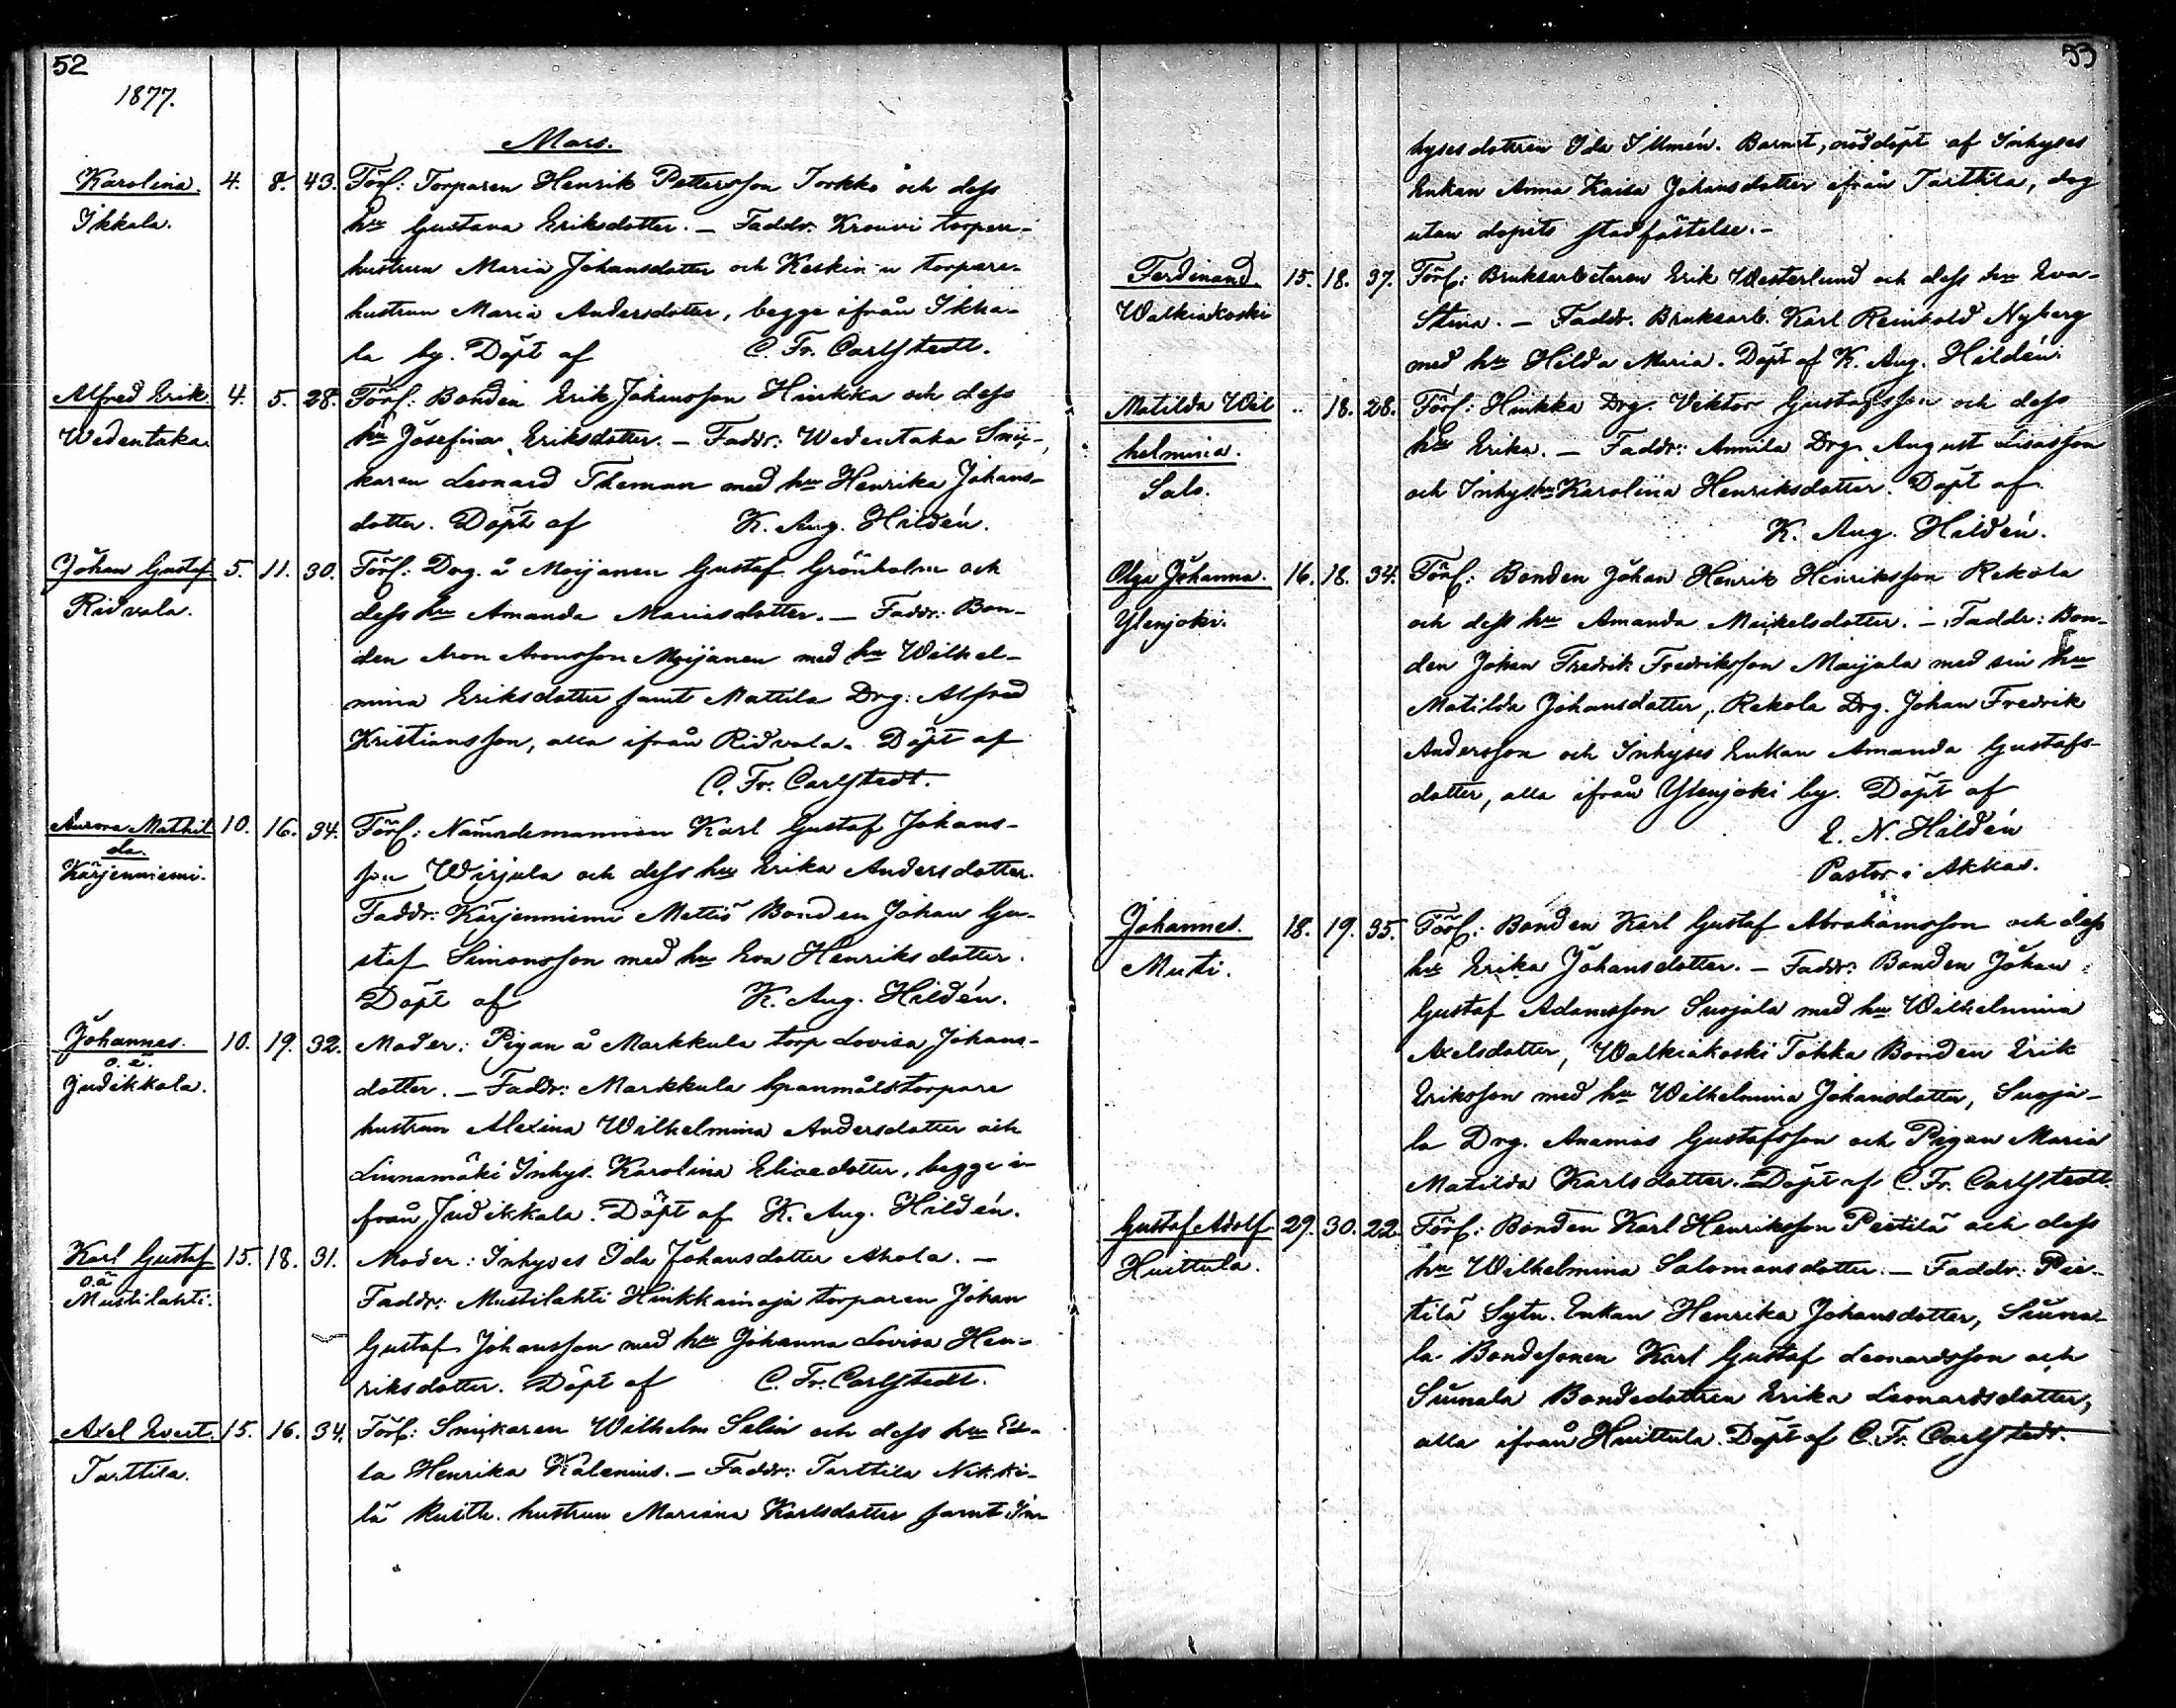 52
1877.
Mars.
Karolina. 4. 8. 43. Förf: Torparen Henrik Pettersson Torkko och dess
Ikkala. hu Gustava Eriksdotter. – Faddr. Krouvi torpare-
hustrun Maria Johansdotter och Keskin-u torpare-
hustrun Maria Andersdotter, begge ifrån Ikka-
la by. Döpt af C. Fr. Carlstedt.
Alfred Erik. 4. 5. 28. Förf: Bonden Erik Johansson Hinkka och dess
Wedentaka. hu Josefina Eriksdotter. – Faddr: Wedentaka Snic-
karen Leonard Theman med hu Henrika Johans-
dotter. Döpt af K. Aug. Hildén.
Johan Gustaf 5. 11. 30. Förf: Drg. å Moijanen Gustaf Grönholm och
Ridvala. dess hu Amanda Mariasdotter. – Faddr: Bon-
den Aron Aronsson Moijanen med hu Wilhel-
mina Eriksdotter samt Mattila Drg: Alfred
Kristiansson, alla ifrån Ridvala. Döpt af
C. Fr. Carlstedt.
Aurora Mathil 10. 16. 34. Förf: Nämndemannen Karl Gustaf Johans-
da.
Kärjenniemi. son Wirjula och dess hu Erika Andersdotter.
Faddr: Kärjenniemi Mattis Bonden Johan Gu-
staf Simonsson med hu Eva Henriksdotter.
Döpt af K. Aug. Hildén.
Johannes. 10. 19. 32. Moder: Pigan å Markkula torp Lovisa Johans-
o. ä.
Judikkala. dotter. – Faddr: Markkula Spanmålstorpare
hustrun Alexina Wilhelmina Andersdotter och
Linnamäki Inhys. Karolina Eliaedotter, begge i-
från Judikkala. Döpt af K. Aug. Hildén.
Karl Gustaf 15. 18. 31. Moder: Inhyses Ida Johansdotter Ahola. –
o.ä
Mustilahti. Faddr: Mustilahti Hinkkainoja torparen Johan
Gustaf Johansson med hu Johanna Lovisa Hen-
riksdotter. Döpt af C. Fr. Carlstedt.
Axel Evert. 15. 16. 34. Förf: Snickaren Wilhelm Selin och dess hu Ed-
Tarttila. la Henrika Kalenius. – Faddr: Tarttila Nikki-
lä hustrun Mariana Karlsdotter samt In-
53
hysesdottren Ida Illmén. Barnet, nöddöpt af Inhyses
Enkan Anna Kaisa Johansdotter ifrån Tarttila, dog
utan dopets stadfästelse. –
Ferdinand. 15. 18. 37. Förf: Bruksarbetaren Erik Westerlund och dess hu Eva-
Walkiakoski Stina. – Faddr. Bruksarb. Karl Reinhold Nyberg
med hu Hilda Maria. Döpt af K. Aug. Hildén.
Matilda Wil .. 18. 28. Förf: Hinkka Drg. Viktor Gustafsson och dess
helmina. hu Erika. – Faddr: Annila Drg. August Lisasson
Salo. och Inhys hu Karolina Henriksdotter. Döpt af
K. Aug. Hildén.
Olga Johanna. 16. 18. 34. Förf: Bonden Johan Henrik Henriksson Rekola
Ylenjoki. och dess hu Amanda Maikelsdotter. – Faddr: Bon-
den Johan Fredrik Fredriksson Maijala med sin hu
Matilda Johansdotter, Rekola Drg. Johan Fredrik
Andersson och Inhyses Enkan Amanda Gustafs-
dotter, alla ifrån Ylenjoki by. Döpt af
E. N. Hildén
Pastor i Akkas.
Johannes. 18. 19. 35. Förf: Bonden Karl Gustaf Abrahamsson och dess
Muti. hu Erika Johansdotter. – Faddr: Bonden Johan
Gustaf Adamsson Suojala med hu Wilhelmina
Axelsdotter, Walkiakoski Tokka Bonden Erik
Eriksson med hu Wilhelmina Johansdotter, Suoja-
la Drg. Ananias Gustafsson och Pigan Maria
Matilda Karlsdotter. Döpt af C. Fr. Carlstedt.
Gustaf Adolf 29. 30. 22. Förf: Bonden Karl Henriksson Pietilä och dess
Huittula. hu Wilhelmina Salomonsdotter. – Faddr: Pie-
tilä Sytn. Enkan Henrika Johansdotter, Siuna-
la Bondesonen Karl Gustaf Leonardsson och
Siunala Bondedottren Erika Leonardsdotter,
alla ifrån Huittula. Döpt af C. Fr. Carlstedt.